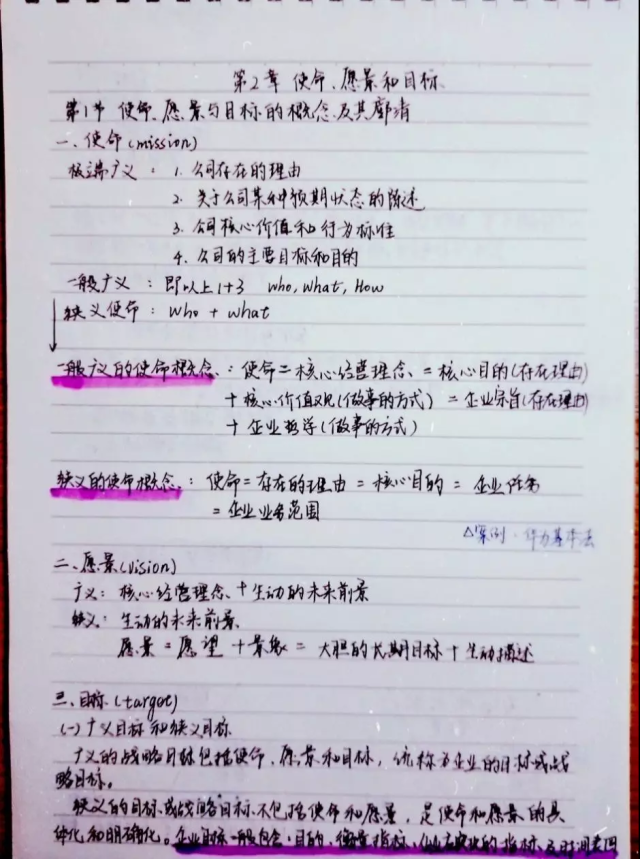 第2章 使命、愿景和目标
第1节 使命、愿景与目标的概念及其廓清
一、使命(mission)
极端广义：1. 公司存在的理由
2. 关于公司某种预期状态的陈述
3. 公司核心价值和行为标准
4. 公司的主要目标和目的
一般广义：即以上1+3 who, what, How
狭义使命：who + what
一般广义的使命概念：使命=核心经营理念=核心目的(存在理由)
+核心价值观(做事的方式)=企业宗旨(存在理由)
+企业哲学(做事的方式)
狭义的使命概念：使命=存在的理由=核心目的=企业任务
=企业业务范围
△案例·华为基本法
二、愿景(vision)
广义：核心经营理念+生动的未来前景
狭义：生动的未来前景
愿景=愿望+景象=大胆的长期目标+生动描述
三、目标(target)
(一)广义目标和狭义目标
广义的战略目标包括使命、愿景和目标，统称为企业的目标或战
略目标。
狭义的目标或战略目标不包括使命和愿景，是使命和愿景的具
体化和明确化。企业目标一般包含：目的、衡量指标、的指标及时间表四